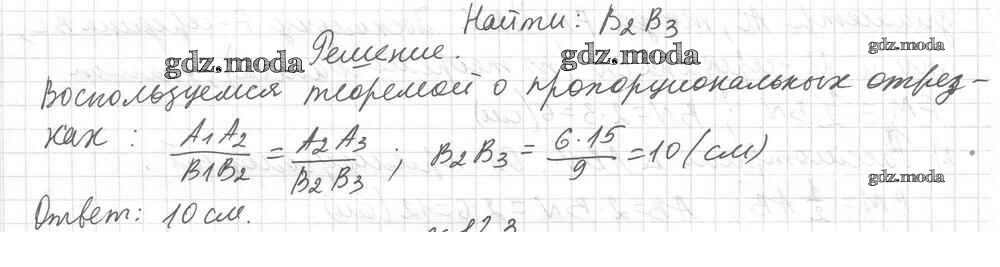 Найти: B₂B₃
Решение.
gdz.moda gdz.moda gdz.moda
Воспользуемся теоремой о пропорциональных отрез-
ках: A₁A₂/B₁B₂ = A₂A₃/B₂B₃; B₂B₃ = 6·15/9 = 10 (см)
gdz.moda
Ответ: 10 см.